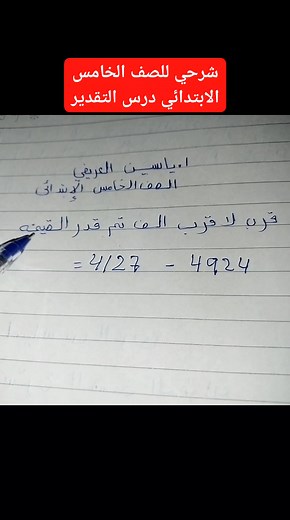 شرحي للصف الخامس
الابتدائي درس التقدير
ام ياسين العريفي
الصف الخامس الإبتدائي
قرب لا قرب الف تم قدر القيمه
4924 - 4127 =